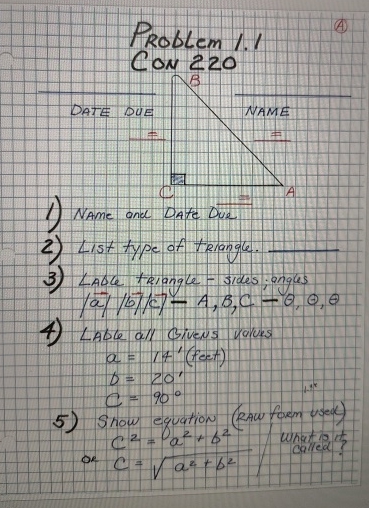 A
Problem 1.1
CON 220
B
DATE DUE
NAME
=
=
C
=
A
1) NAME and DATE DUE
2) LIST type of triangle.
3) LABLE triangle - sides, angles
|a| |b| |c| — A, B, C — θ, θ, θ
4) LABLE all Givens values
a = 14' (feet)
b = 20'
C = 90°
5) Show equation (RAW form used)
C² = a² + b²
What is it called?
OR C = √a² + b²